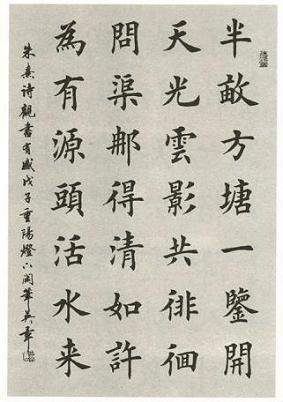 半畝方塘一鑒開
天光雲影共徘徊
問渠那得清如許
為有源頭活水来
朱熹诗觀書有感戊子重陽燈下闗華英書